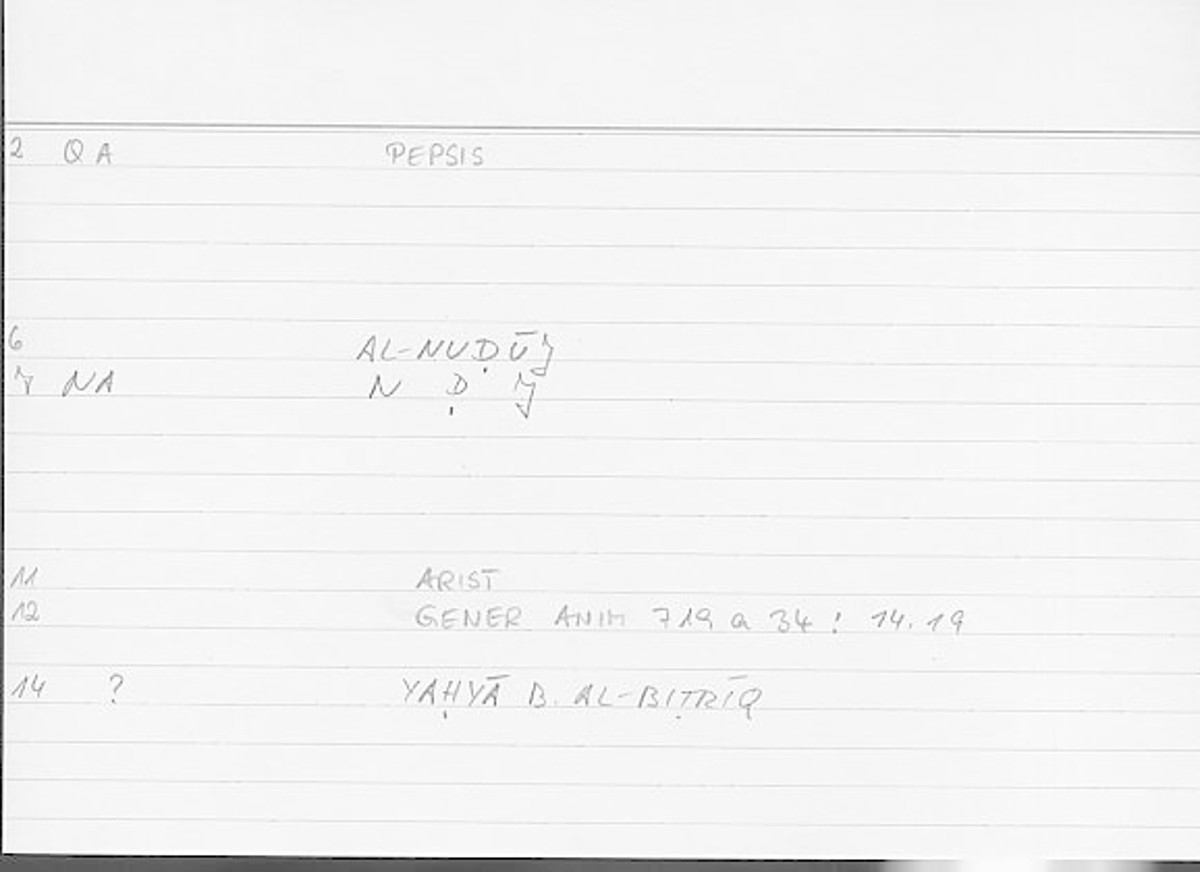 2 QA PEPSIS
6 AL-NUḌŪJ
7 NA N Ḍ J
11 ARIST
12 GENER ANIM 719 a 34 : 14.19
14 ? YAḤYĀ B. AL-BIṬRĪQ